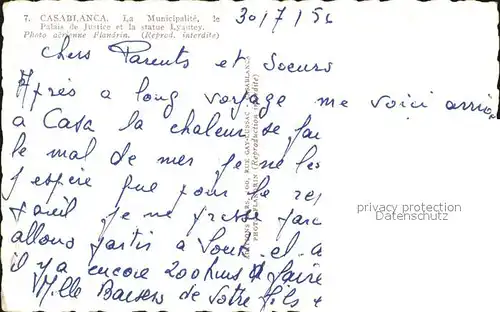 7. CASABLANCA. La Municipalité, le
Palais de Justice et la statue Lyautey.
Photo aérienne Flandrin. (Reprod. interdite)
30/7/56
Chers Parents et Soeurs
Après a long voyage me voici arrivé
a Casa la chaleur se fai
le mal de mer je ne les
J'espère que pour le re
pareil je ne presse parc
allons partis a et a
il y a encore 200 kms faire
Mille Baisers de votre fils
GAY-LUSSAC, CASABLANCA
PHOTO FLANDRIN (Reproduction interdite)
privacy protection
Datenschutz